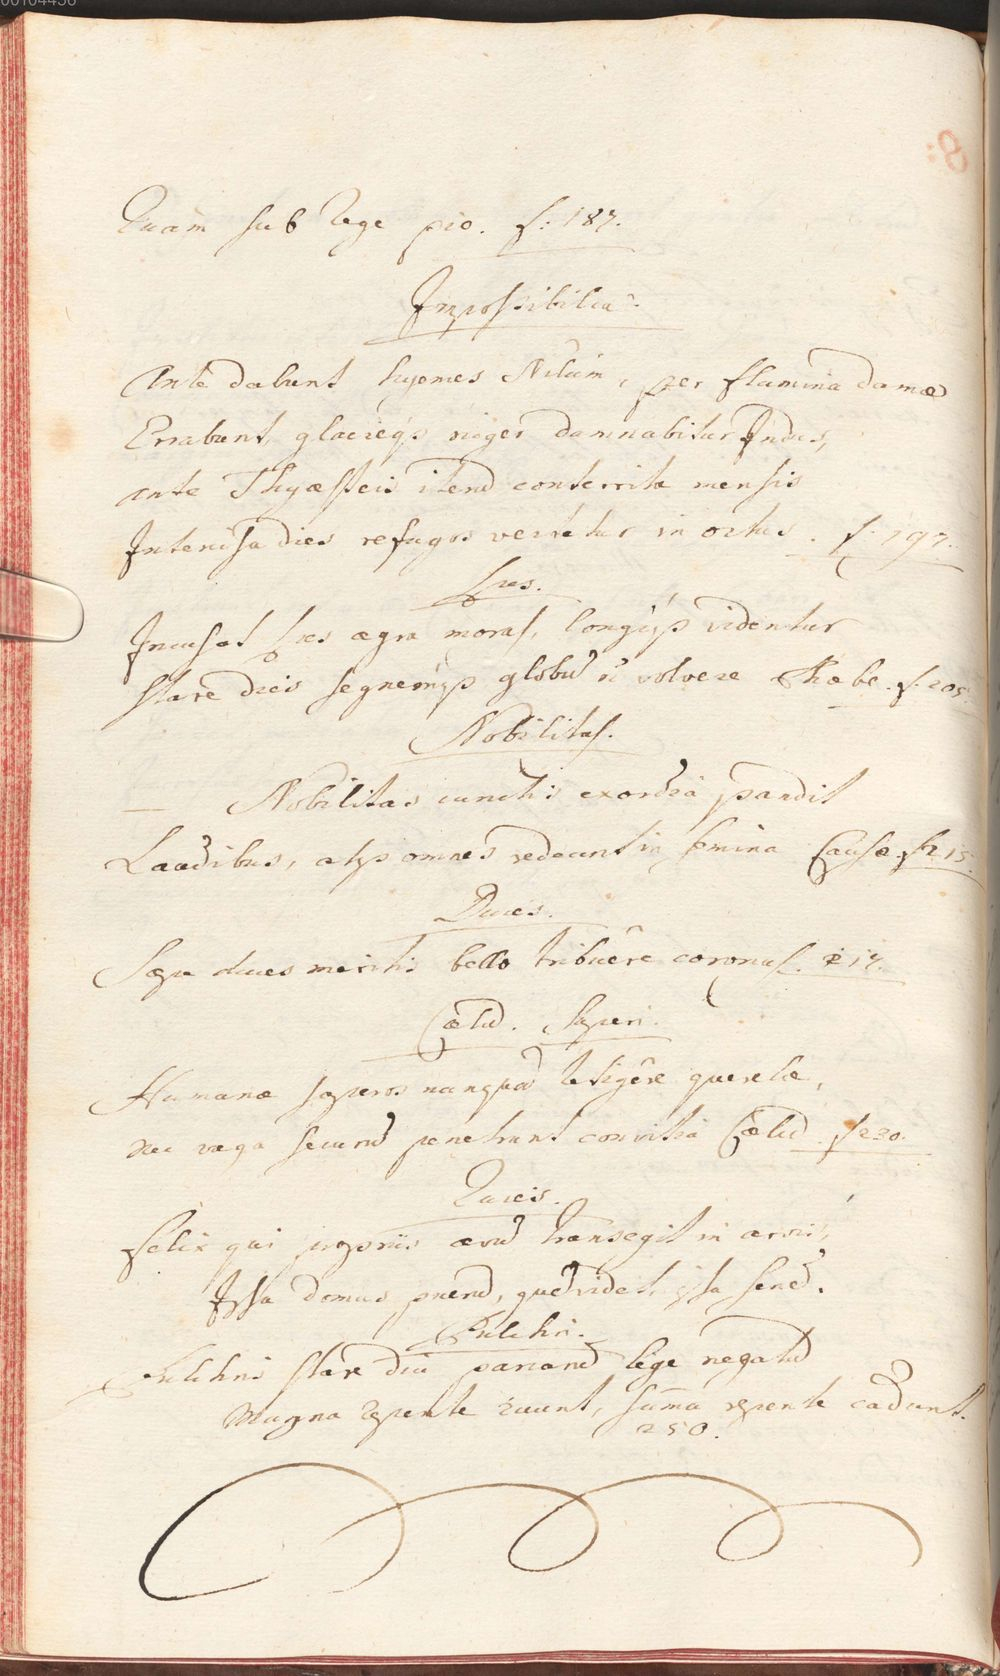 00104436
8:
Quam sub Rege pio. f: 187.
Impossibilia.
Ante dabunt hyemes Nilum, per flumina damæ
Errabunt, glacieqз niger damnabitur Indus,
ante Thyæsteis iterũ conterrita mensis
Intercisa dies refugos vertetur in ortus. f: 197.
Spes.
Incusat spes ægra moras, longiqз videntur
stare dies segnemqз globũ ñ volvere Phœbe. f. 205.
Nobilitas.
— Nobilitas cunctis exordia pandit
Laudibus, atqз omnes redeunt in semina Causæ. f 215.
Duces.
Sæpe duces meritis bello tribuêre coronas. 217.
Cœlũ. Superi.
Humanæ superos nunquã tetigêre querelæ,
nec vaga securũ penetrant convitia Cœlũ f 230.
Quies.
Felix qui propriis ævũ transegit in arvis,
Ipsa domus puerũ, quẽ videt, ipsa senẽ.
Pulchri.
Pulchris stare diu parcarũ lege negatũ
Magna repente ruunt, sum̃a repente cadunt.
250.